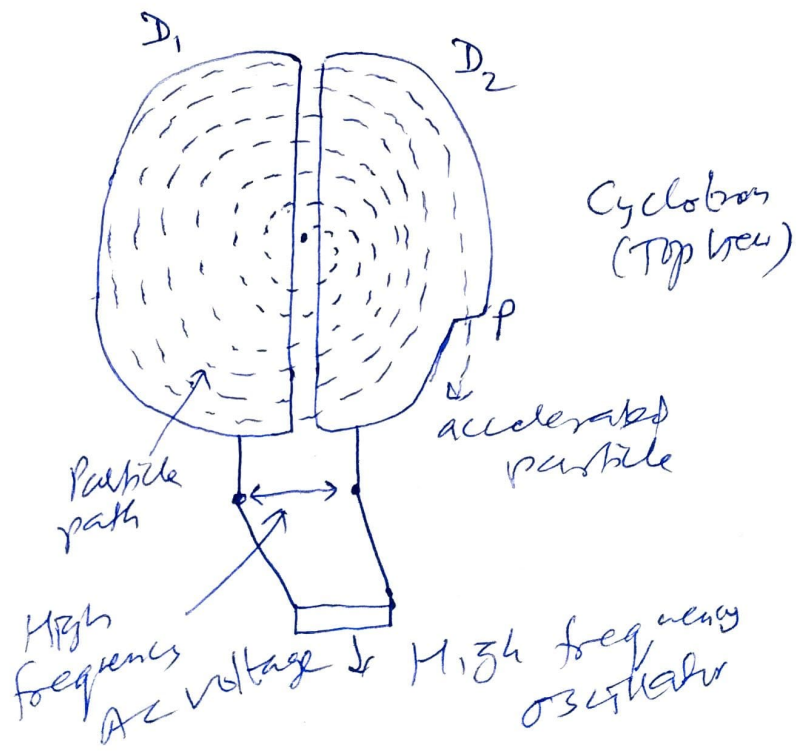 D₁
D₂
Cyclotron
(Top view)
P
accelerated
particle
Particle
path
High
frequency
AC voltage
High frequency
oscillator